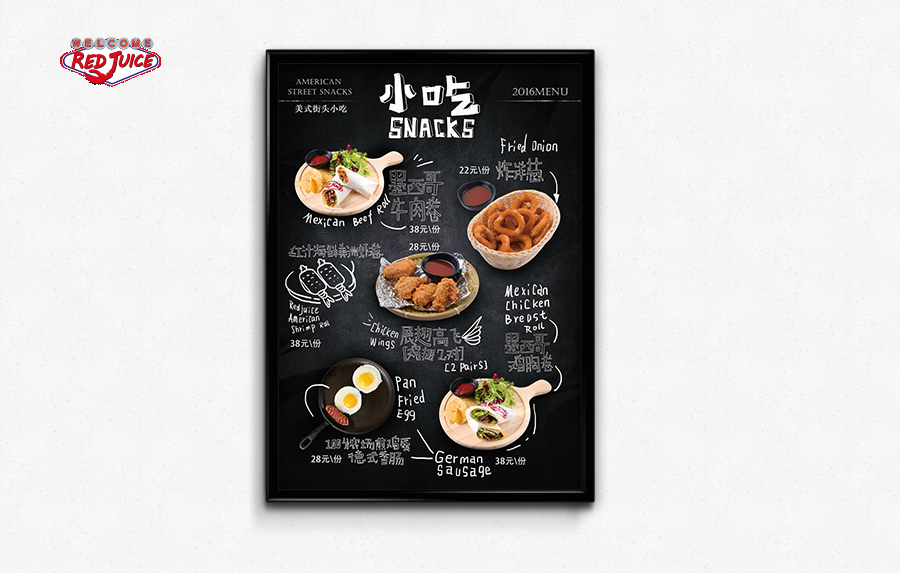 WELCOME
RED JUICE
AMERICAN
STREET SNACKS
美式街头小吃
小吃
SNACKS
2016MENU
Fried Onion
22元\份
炸洋葱
墨西哥
牛肉卷
Mexican Beef Roll
38元\份
28元\份
Redjuice
American
Shrimp Roll
38元\份
Chicken
Wings
展翅高飞
[鸡翅2对]
[2 Pairs]
Mexican
Chicken
Breast
Roll
墨西哥
鸡胸卷
Pan
Fried
Egg
德式香肠
28元\份
German
Sausage
38元\份